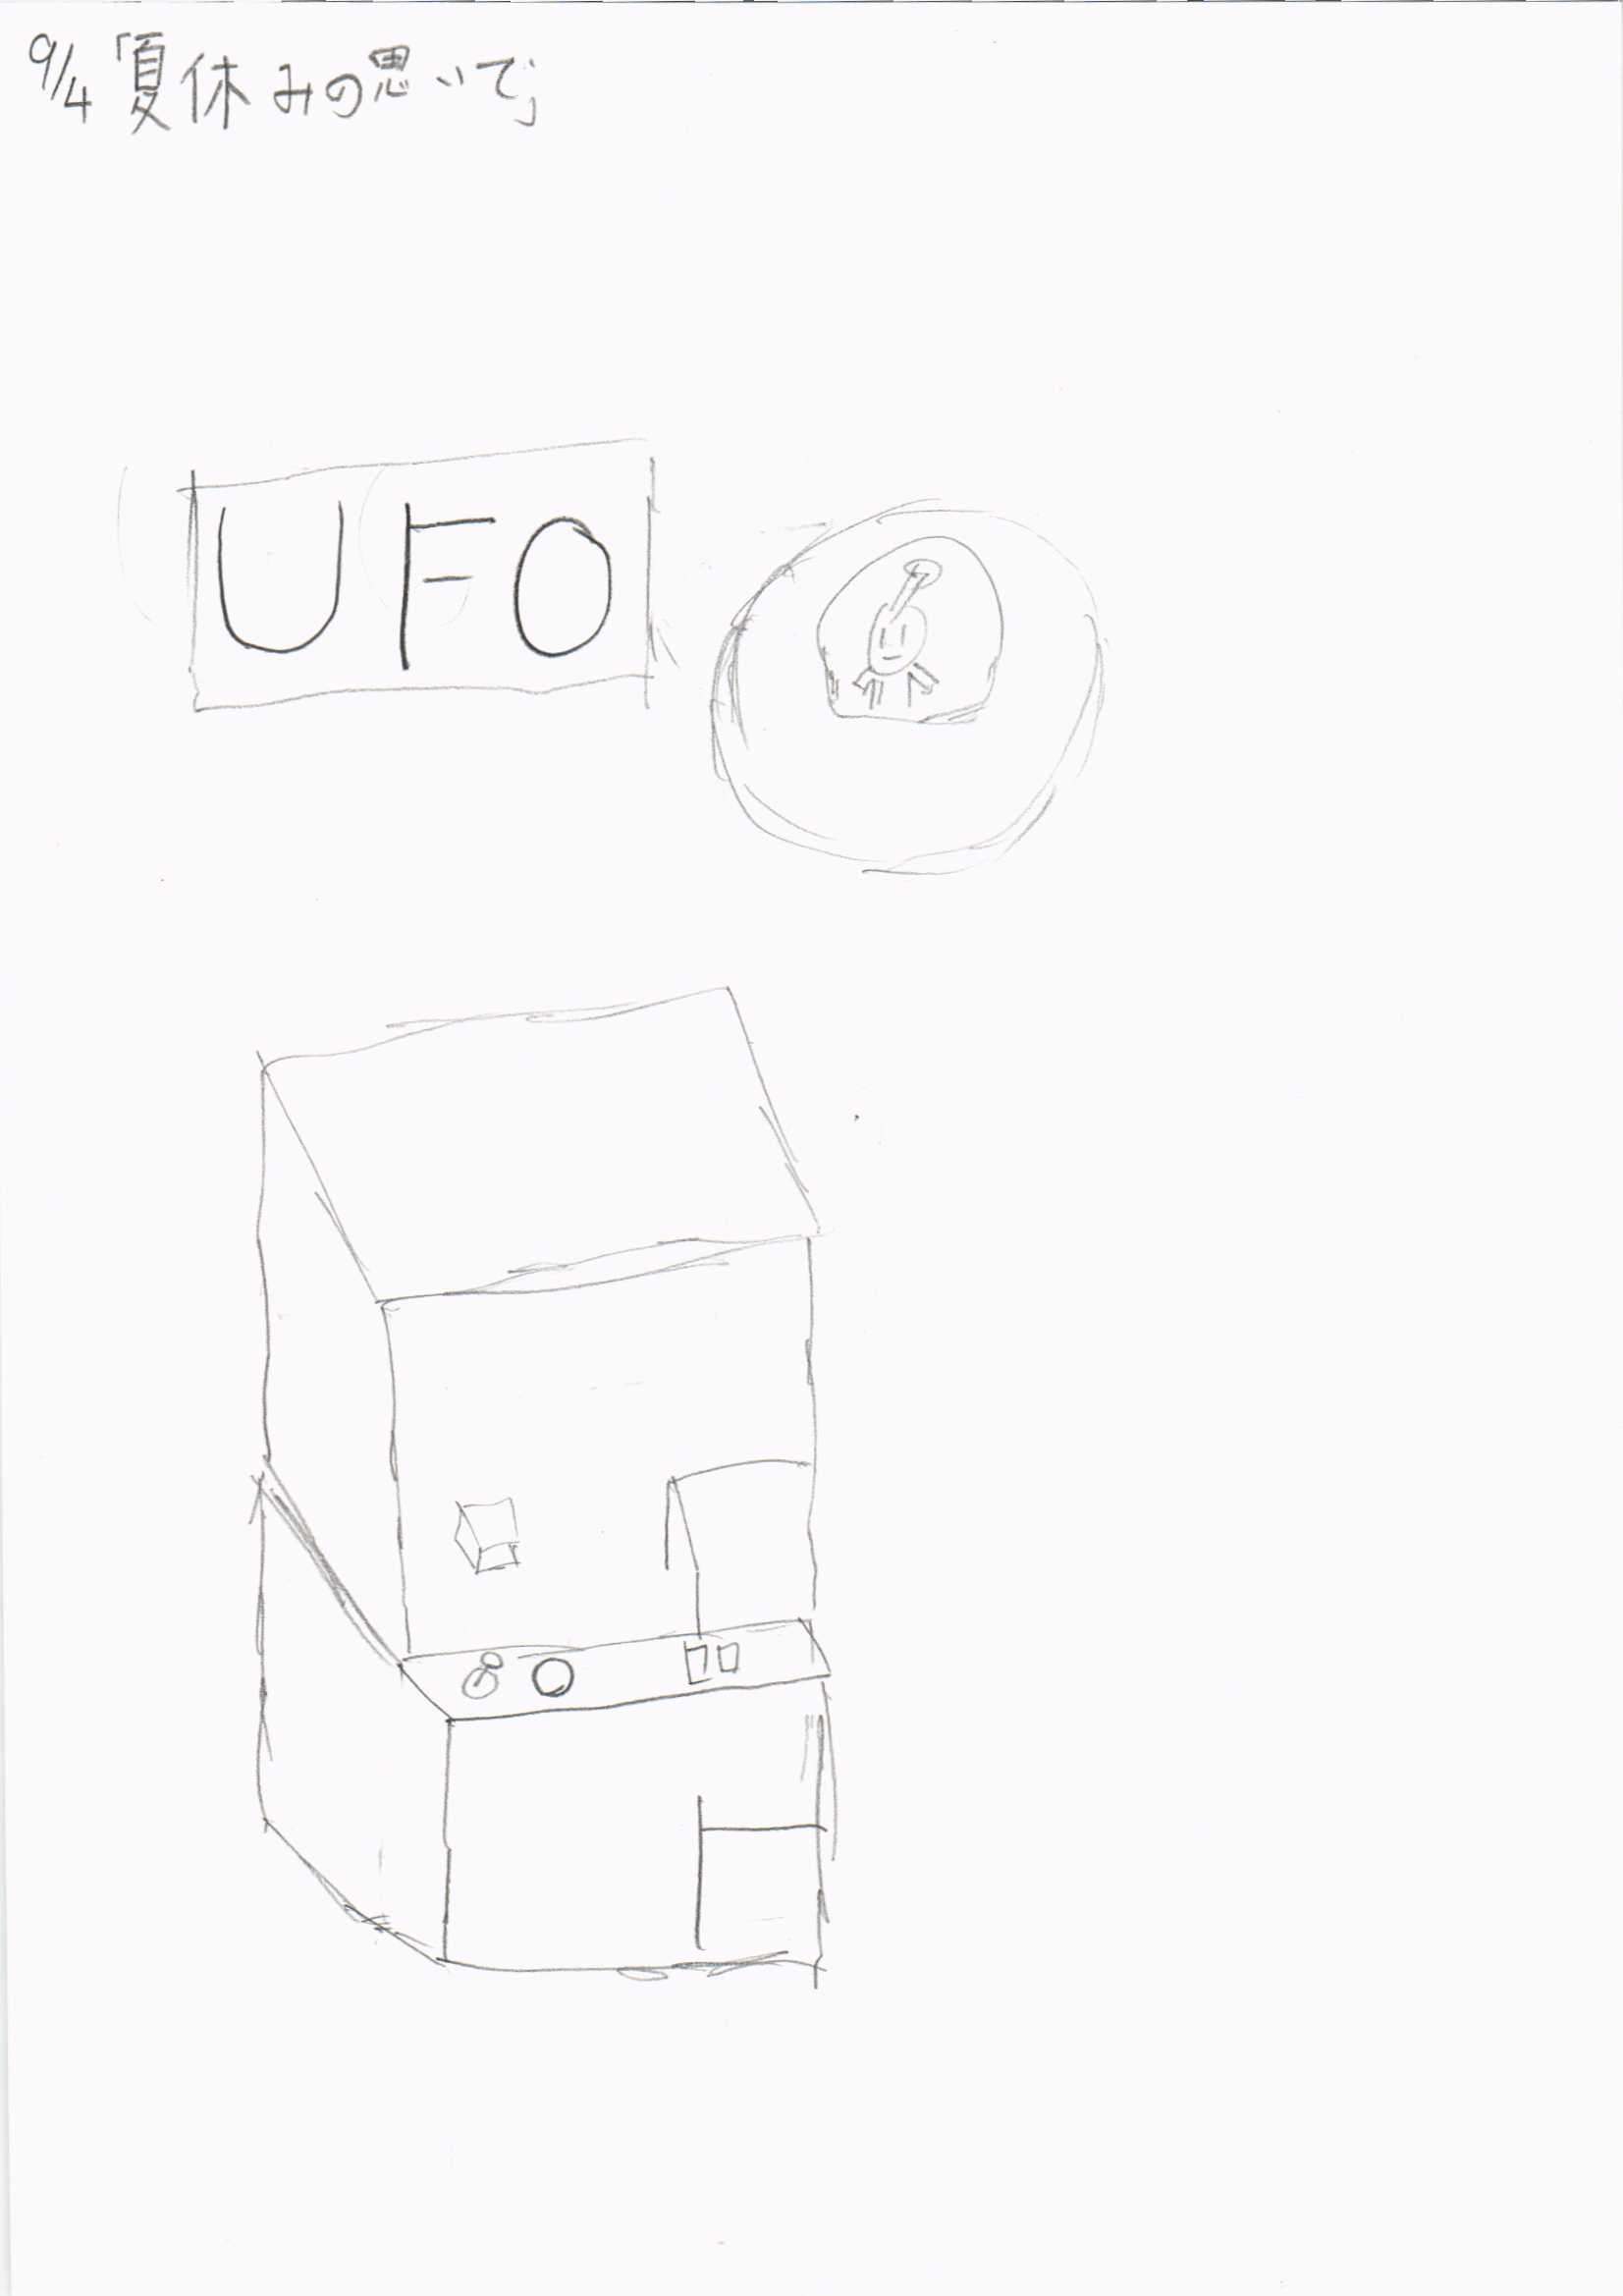 9/4「夏休みの思いで」
UFO